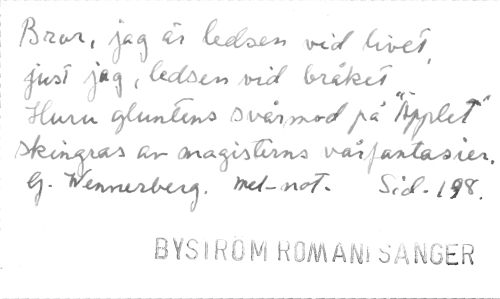 Bror, jag är ledsen vid livet,
just jag, ledsen vid bråket
Huru gluntens svårmod på "Äpplet"
skingras av magisterns vårfantasier.
G. Wennerberg. mel-not. Sid. 198.
BYSTRÖM ROMANI SÅNGER